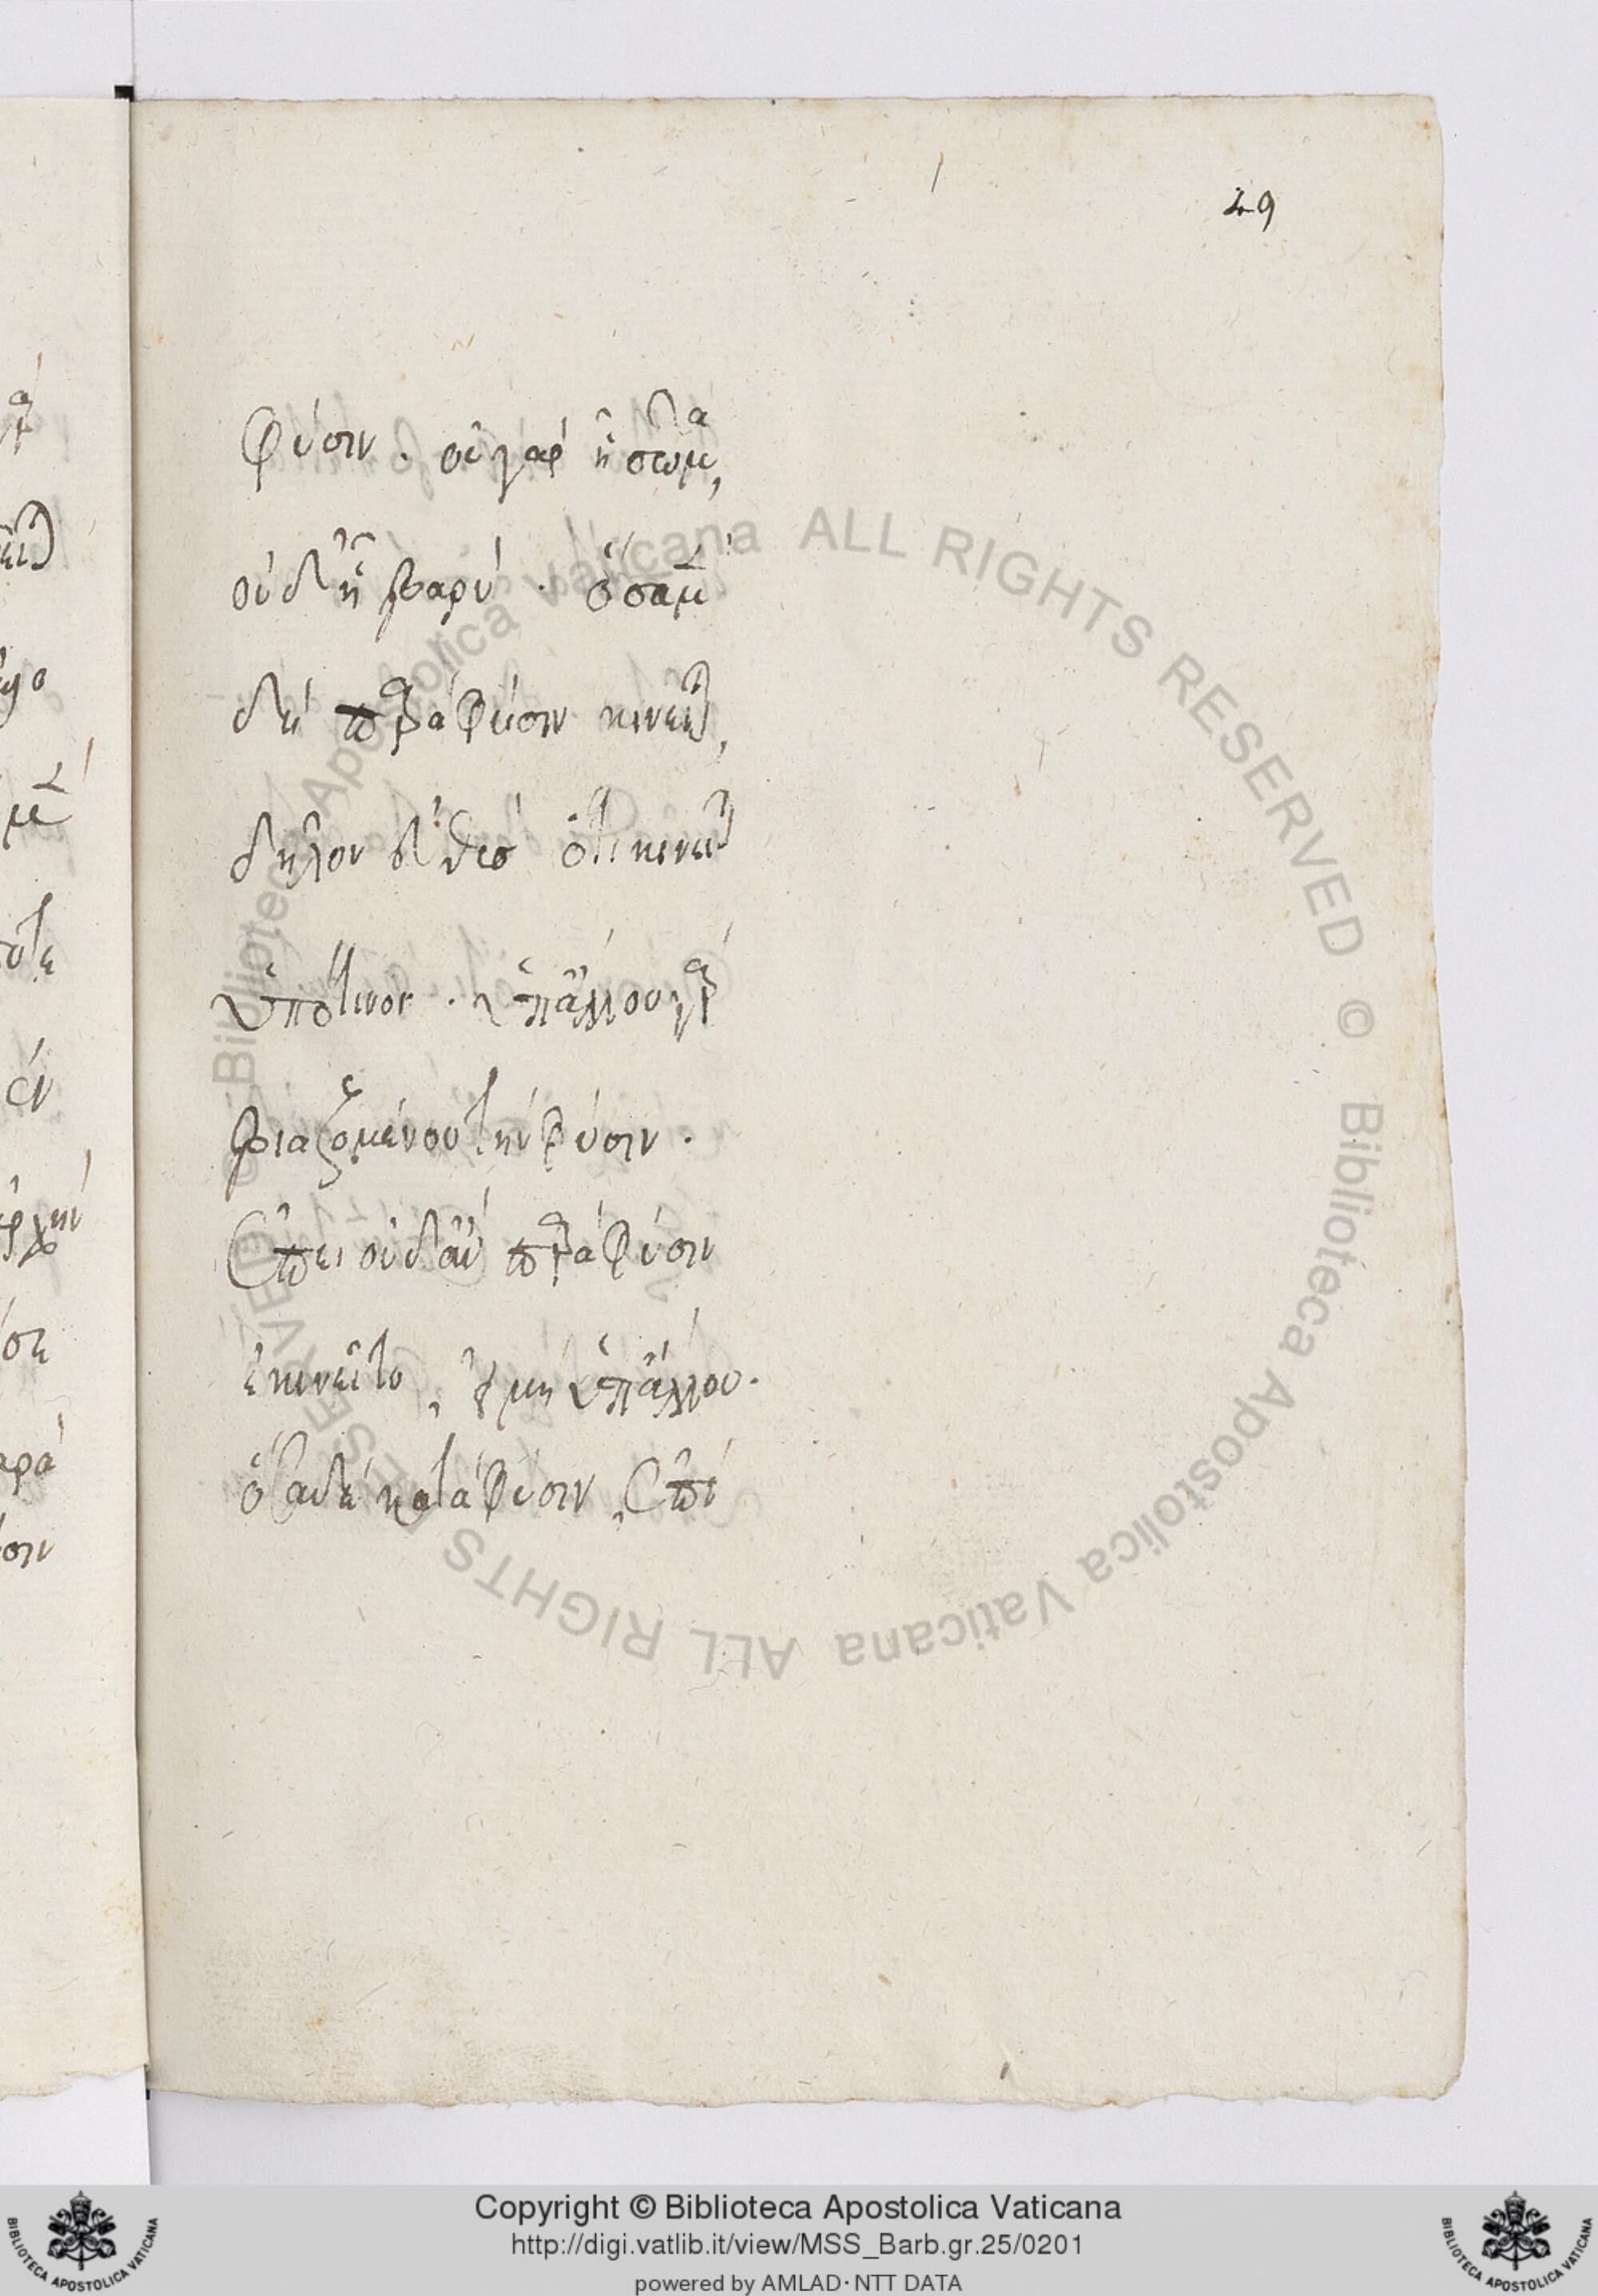 49
φύσιν. οὐ γὰρ ᾗ σῶμα,
οὐδ' ᾗ βαρύ. ὅσα μὲν
δὲ παρὰ φύσιν κινεῖται,
δῆλον δήθεσ ὅτι κινεῖται
ὑπό τινος. ὑπ' ἄλλου γὰρ
βιαζομένου τὴν φύσιν.
ἐπεὶ οὐδ' ἂν παρὰ φύσιν
ἐκινεῖτο, εἰ μὴ ὑπ' ἄλλου.
ὅσα δὲ κατὰ φύσιν, ἐπὶ
Biblioteca Apostolica Vaticana ALL RIGHTS RESERVED © Biblioteca Apostolica Vaticana ALL RIGHTS RESERVED ©
Copyright © Biblioteca Apostolica Vaticana
http://digi.vatlib.it/view/MSS_Barb.gr.25/0201
powered by AMLAD·NTT DATA
BIBLIOTECA APOSTOLICA VATICANA
BIBLIOTECA APOSTOLICA VATICANA